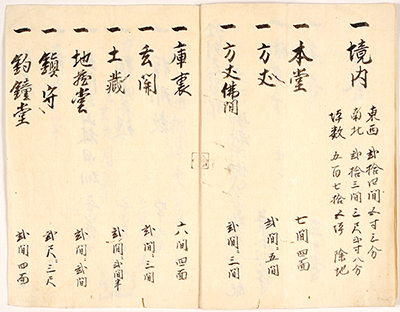 一 境内 東西 弐拾四間五寸三分
南北 弐拾三間三尺弐寸八分
坪数 五百七拾五坪 除地
一 本堂 七間四面
一 方丈 弐間ニ五間
一 方丈佛間 弐間ニ三間
一 庫裏 六間四面
一 玄関 弐間ニ三間
一 土藏 弐間ニ弐間半
一 地蔵堂 弐間ニ弐間
一 鎮守 弐尺ニ三尺
一 釣鐘堂 弐間四面